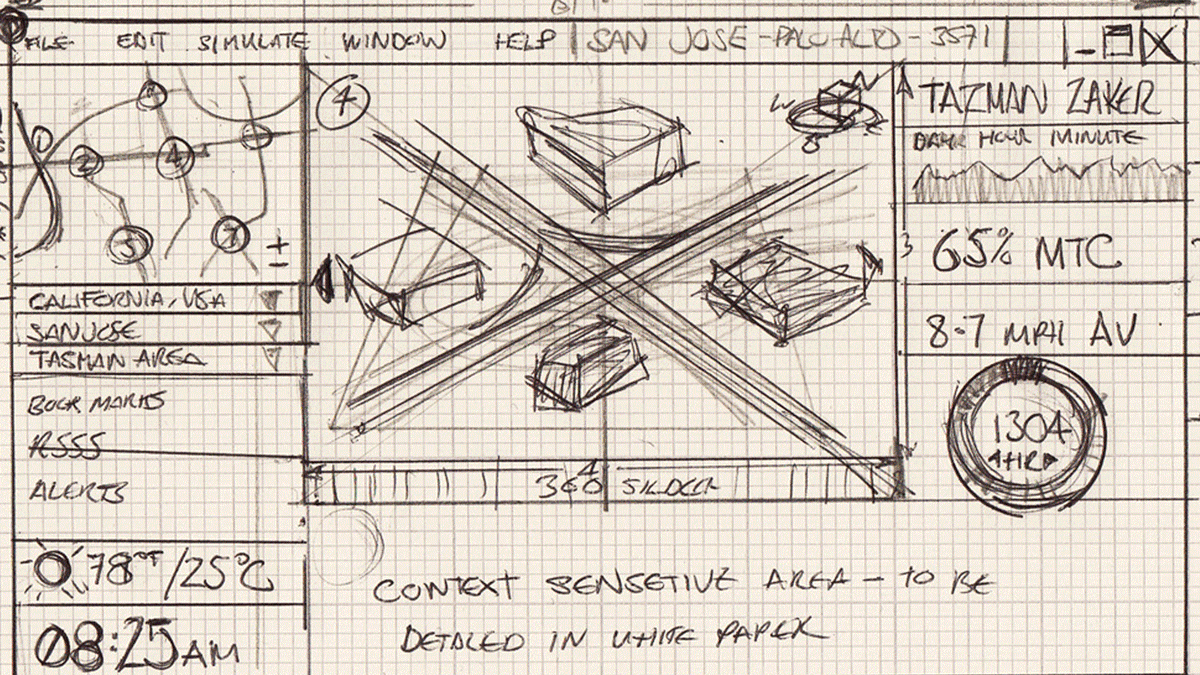 FILE EDIT SIMULATE WINDOW HELP SAN JOSE - PALO ALTO - 3571
1
2
4
5
7
±
CALIFORNIA, USA
SAN JOSE
TASMAN AREA
BOOK MARKS
RSSS
ALERTS
78°F/25°C
08:25AM
4
N
W
S
360 SILDER
CONTEXT SENSETIVE AREA - TO BE
DETALED IN WHITE PAPER
TAZMAN ZAKER
HOUR MINUTE
65% MTC
8.7 MPH AV
1304